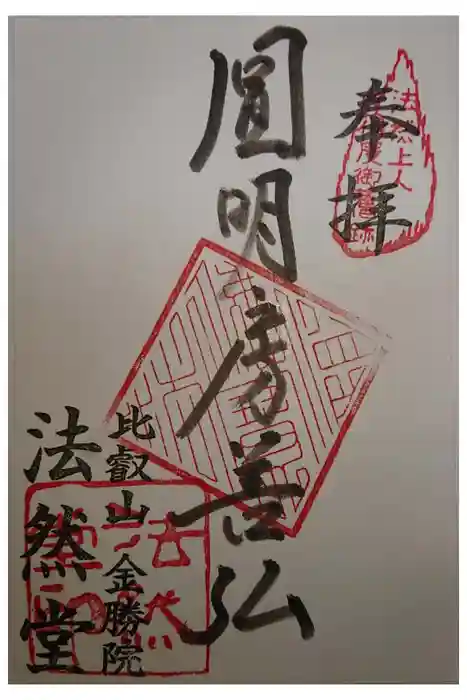 奉拝
法然上人
得度御舊跡
圓明房善弘
比叡山金勝院
法然堂